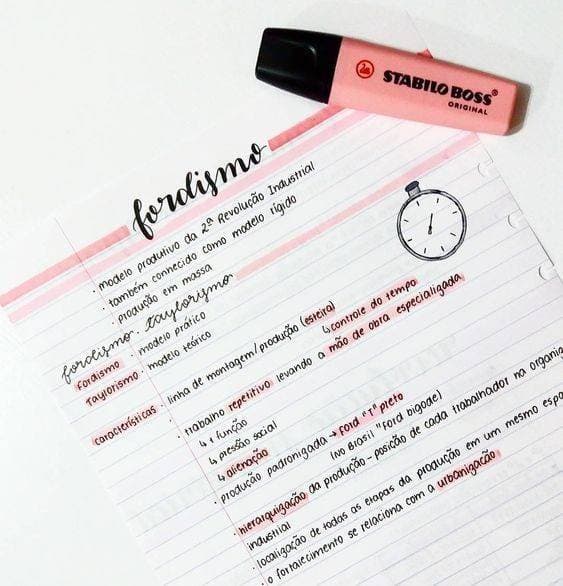 STABILO BOSS®
ORIGINAL
fordismo
· modelo produtivo da 2ª Revolução Industrial
· também conhecido como modelo rígido
· produção em massa
fordismo · taylorismo
Fordismo · modelo prático
Taylorismo · modelo teórico
características · linha de montagem/produção (esteira)
↳ controle do tempo
· trabalho repetitivo levando a mão de obra especializada
↳ 1 função
↳ pressão social
↳ alienação
· produção padronizada → Ford "T" preto
(no Brasil "Ford bigode)
· hierarquização da produção - posição de cada trabalhador na
industrial
· localização de todas as etapas da produção em um mesmo
· o fortalecimento se relaciona com a urbanização